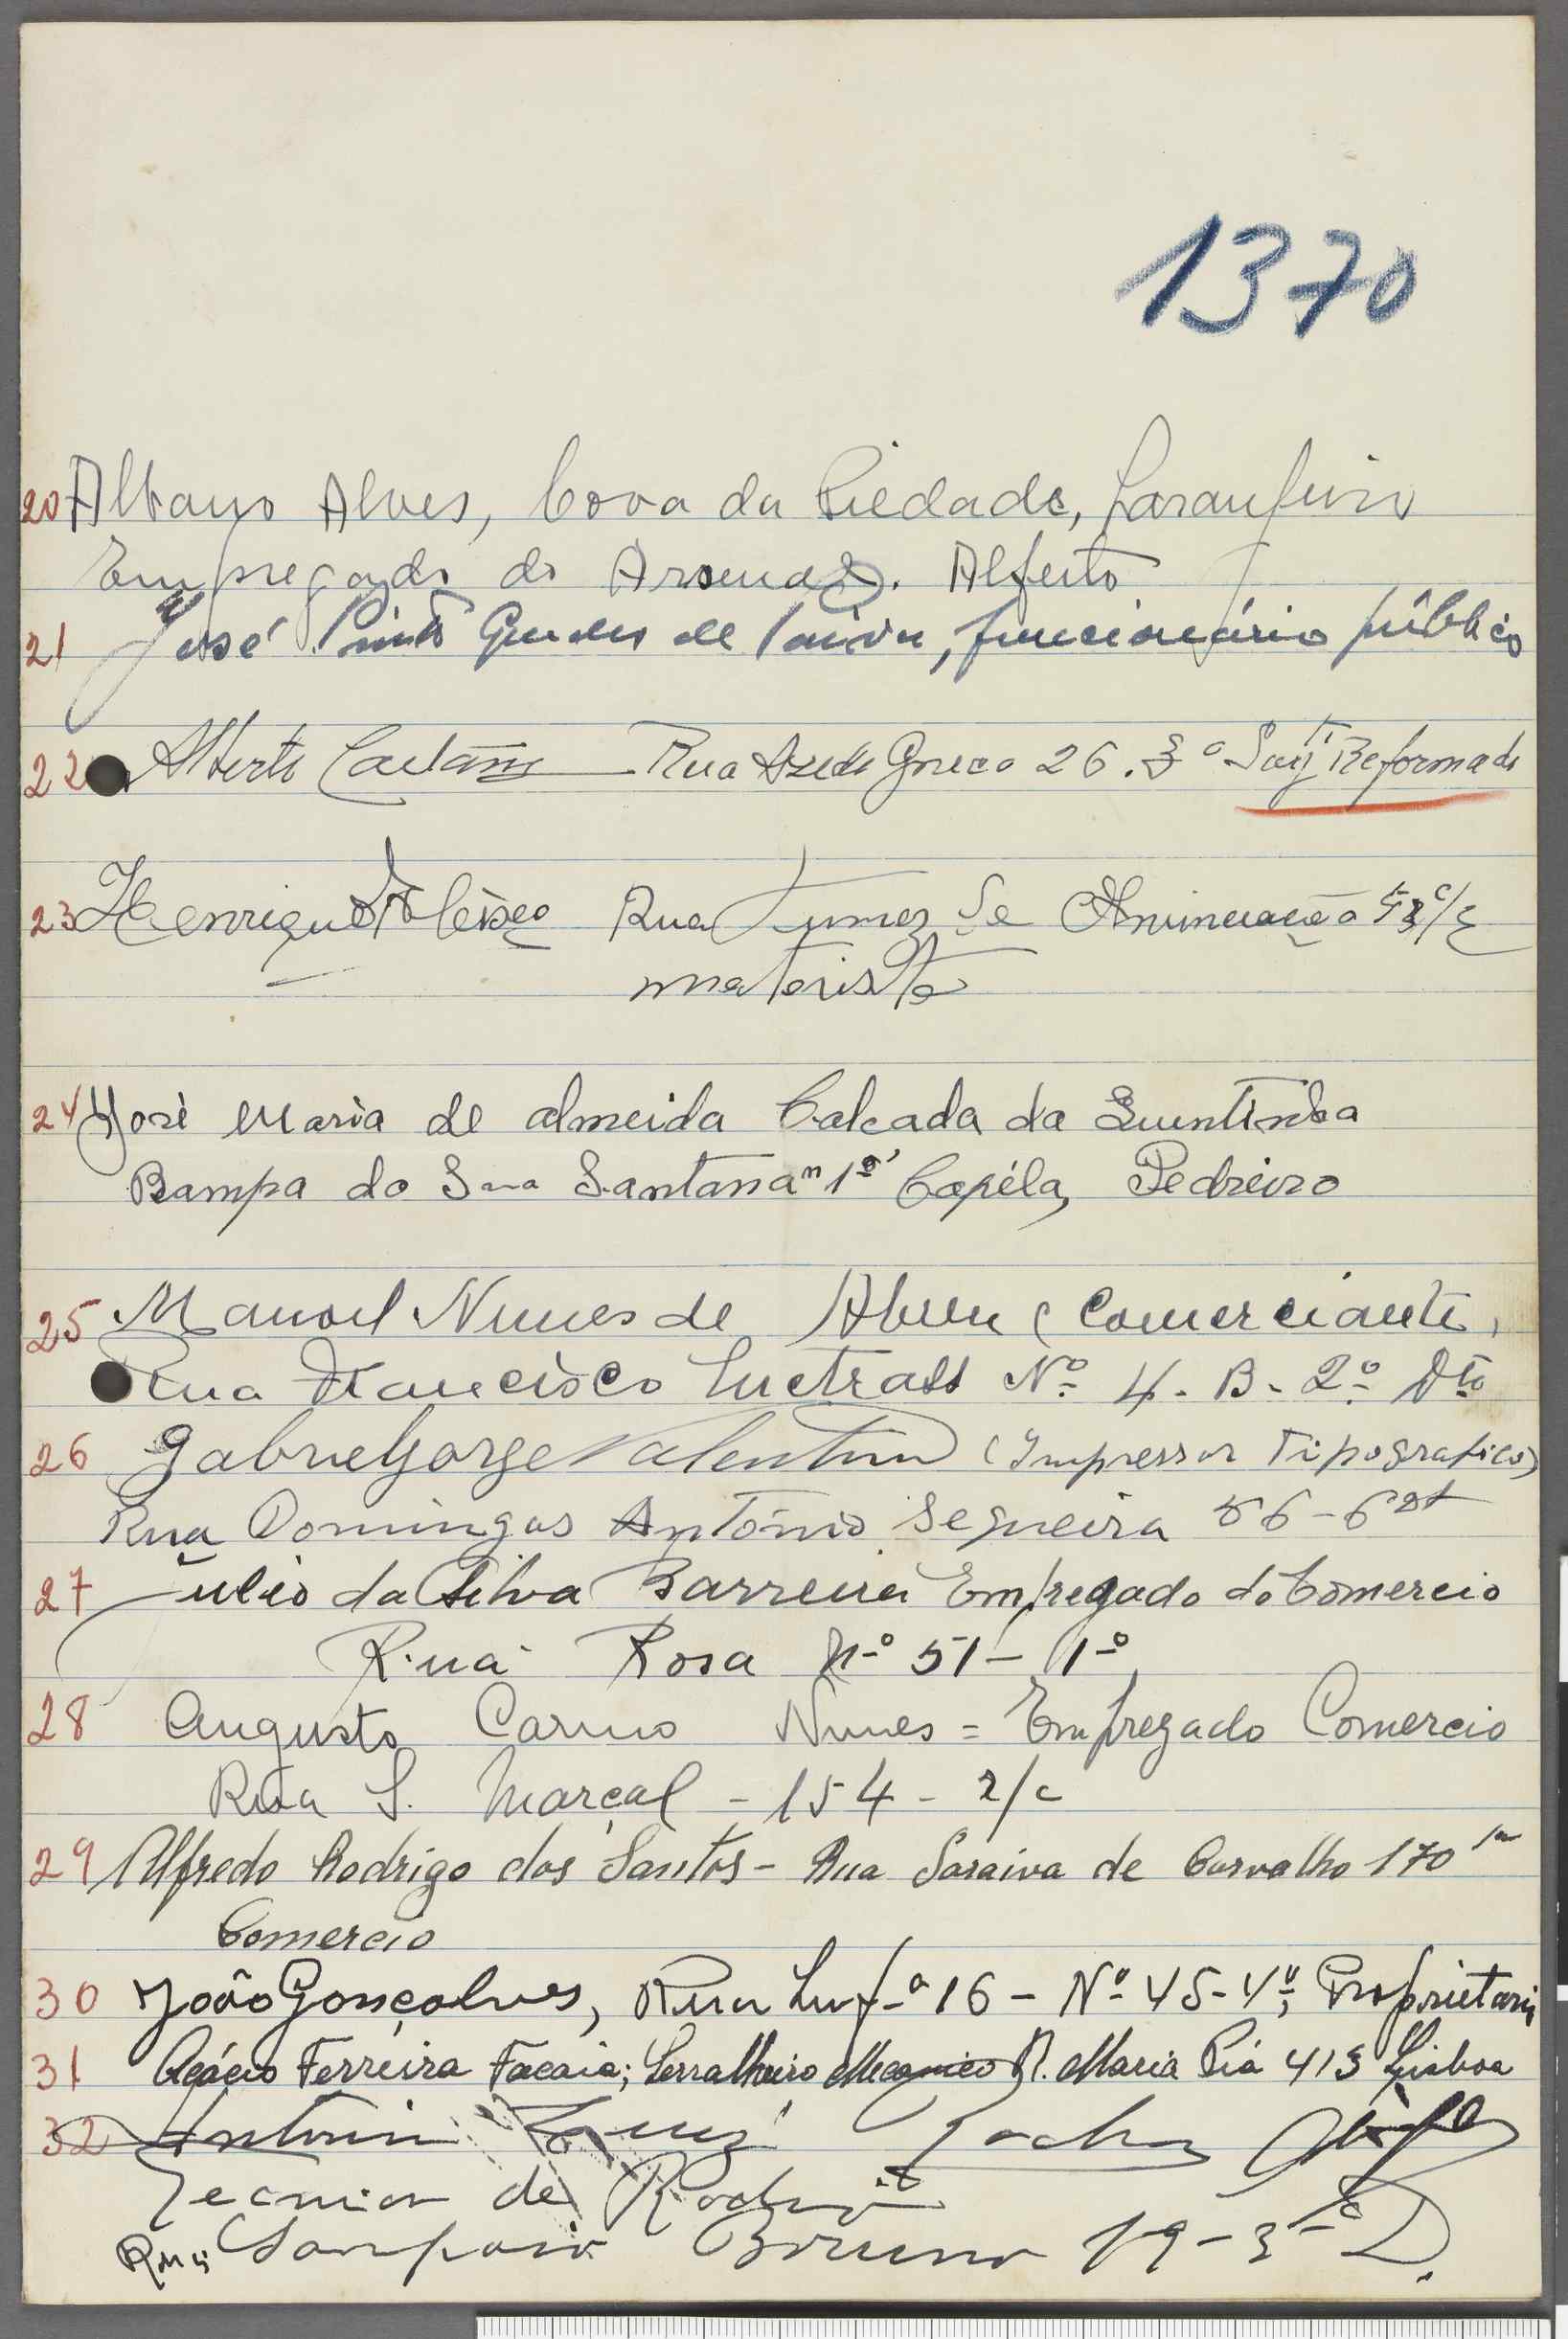 1370
20 Albano Alves, Cova da Piedade, Laranjeiro
Empregado do Arsenal do Alfeite
21 José Pinto Guedes de Paiva, funcionário público
22 Alberto Caetano Rua Azedo Gneco 26.3º Sarg Reformado
23 Henrique Rua de Anunciação r/c
motorista
24 José Maria de almeida Calcada da Quintinha
Rampa do Sna Santana nº 1 Capéla, Pedreiro
25 Manoel Nunes de Abreu (comerciante,
Rua Francisco Nº 4. B. 2º Dto
26 Gabriel Jorge Valentim (Impressor Tipografico)
Rua Domingos António Sequeira 56-6º
27 Julio da Silva Barreira Empregado do Comercio
Rua Rosa nº 51-1º
28 Augusto Carmo Nunes = Empregado Comercio
Rua S. Marçal - 154 - r/c
29 Alfredo Rodrigo dos Santos - Rua Saraiva de Carvalho 170
Comercio
30 João Gonçalves, Rua 16 - Nº 45-4º, Proprietario
31 Acácio Ferreira Facaia; Serralheiro Mecanico R. Maria Piá 413 Lisboa
32 António Rocha
Tecnico de Radio
Rua Sampaio Bruno 19-3º D.